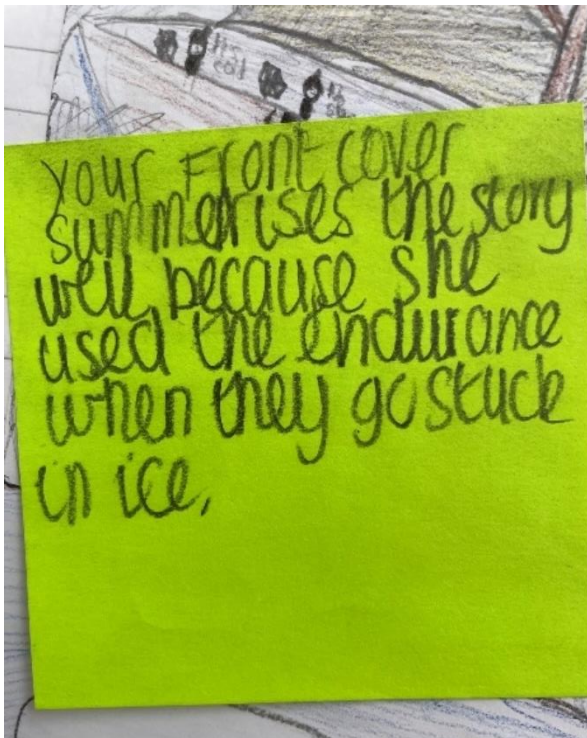 your Front cover
summerises the story
well, because she
used the endurance
when they go stuck
in ice,